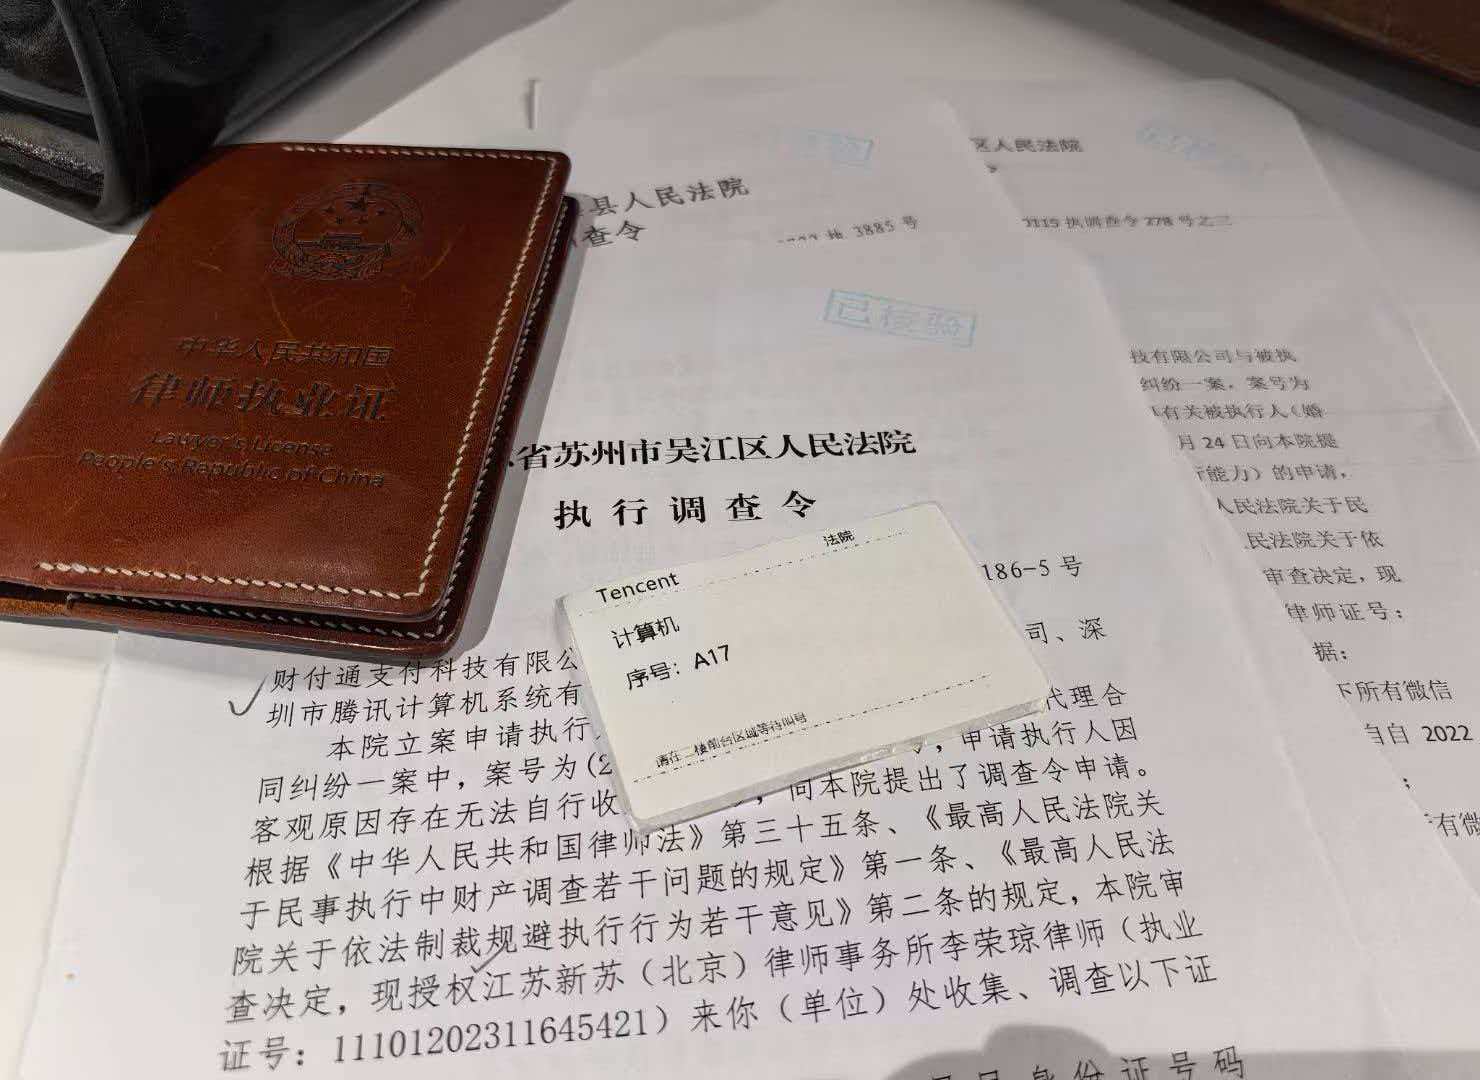 中华人民共和国
律师执业证
Lawyer's License
People's Republic of China
县人民法院
查令
执 3885 号
区人民法院
0115 执调查令 278 号之三
已核验
省苏州市吴江区人民法院
执行调查令
186-5 号
财付通支付科技有限公司、深
圳市腾讯计算机系统有
本院立案申请执行 代理合
同纠纷一案中，案号为(2 ，申请执行人因
客观原因存在无法自行收 ，向本院提出了调查令申请。
根据《中华人民共和国律师法》第三十五条、《最高人民法院关
于民事执行中财产调查若干问题的规定》第一条、《最高人民法
院关于依法制裁规避执行行为若干意见》第二条的规定，本院审
查决定，现授权江苏新苏（北京）律师事务所李荣琼律师（执业
证号：11101202311645421）来你（单位）处收集、调查以下证
身份证号码
法院
Tencent
计算机
序号：A17
请在一楼前台区域等待叫号
技有限公司与被执
纠纷一案，案号为
有关被执行人（婚
月 24 日向本院提
行能力）的申请，
人民法院关于民
民法院关于依
审查决定，现
律师证号：
据：
下所有微信
自 2022
；
有微